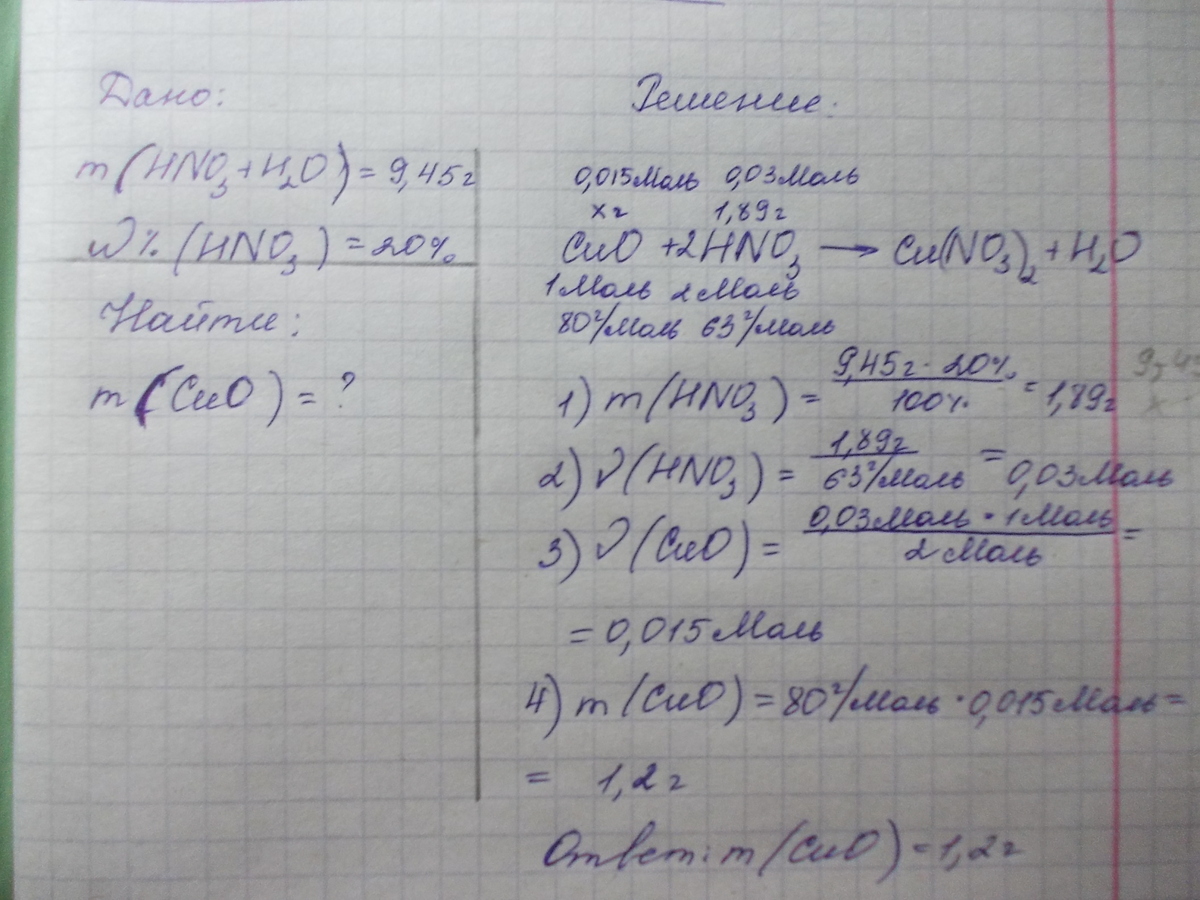 Дано:
m(HNO₃+H₂O)=9,45г
W%(HNO₃)=20%
Найти:
m(CuO)=?
Решение:
0,015Моль 0,03Моль
xг 1,89г
CuO+2HNO₃→Cu(NO₃)₂+H₂O
1Моль 2Моль
80г/Моль 63г/Моль
1) m(HNO₃)= 9,45г·20% / 100% = 1,89г
2) ν(HNO₃)= 1,89г / 63г/Моль = 0,03Моль
3) ν(CuO)= 0,03Моль·1Моль / 2Моль =
=0,015Моль
4) m(CuO)=80г/Моль·0,015Моль=
= 1,2г
Ответ: m(CuO)=1,2г